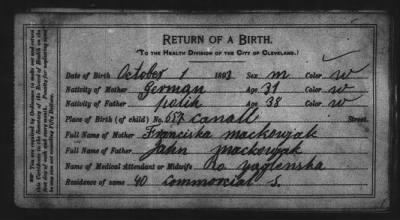 RETURN OF A BIRTH.
(TO THE HEALTH DIVISION OF THE CITY OF CLEVELAND.)
Date of Birth October 1 1893 Sex m Color w
Nativity of Mother German Age 31 Color w
Nativity of Father polish Age 38 Color w
Place of Birth (of child) No. 687 canall Street.
Full Name of Mother Franciska mackowjak
Full Name of Father Jahn mackowjak
Name of Medical Attendant or Midwife Ro yaglenska
Residence of same 40 commorcial s.